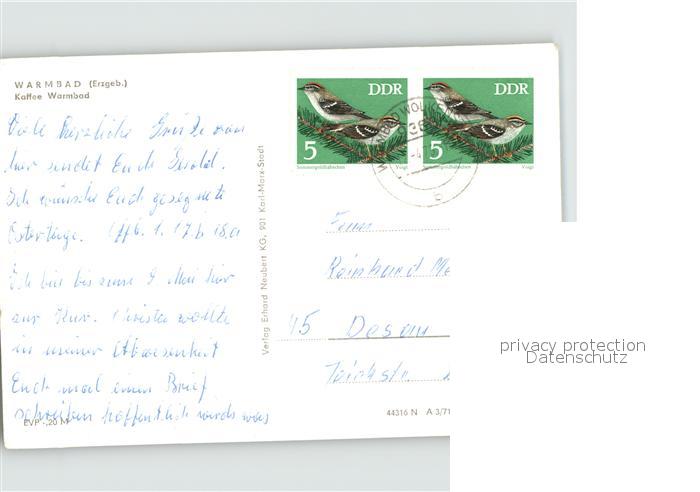 WARMBAD (Erzgeb.)
Kaffee Warmbad
Viele herzliche Grüße von
hier sendet Euch
Ich wünsche Euch gesegnete
Ostertage. Offb. 1. 17 b 18 a
Ich bin bis zum 9. Mai hier
zur Kur. Christa wollte
in meiner Abwesenheit
Euch mal einen Brief
schreiben hoffentlich wirds was
EVP -,20 M
Verlag Erhard Neubert KG, 901 Karl-Marx-Stadt
DDR
5
Sommergoldhähnchen
Voigt
DDR
5
Sommergoldhähnchen
Voigt
Fam.
Reinhard
45 Dessau
44316 N A 3/71
privacy protection
Datenschutz